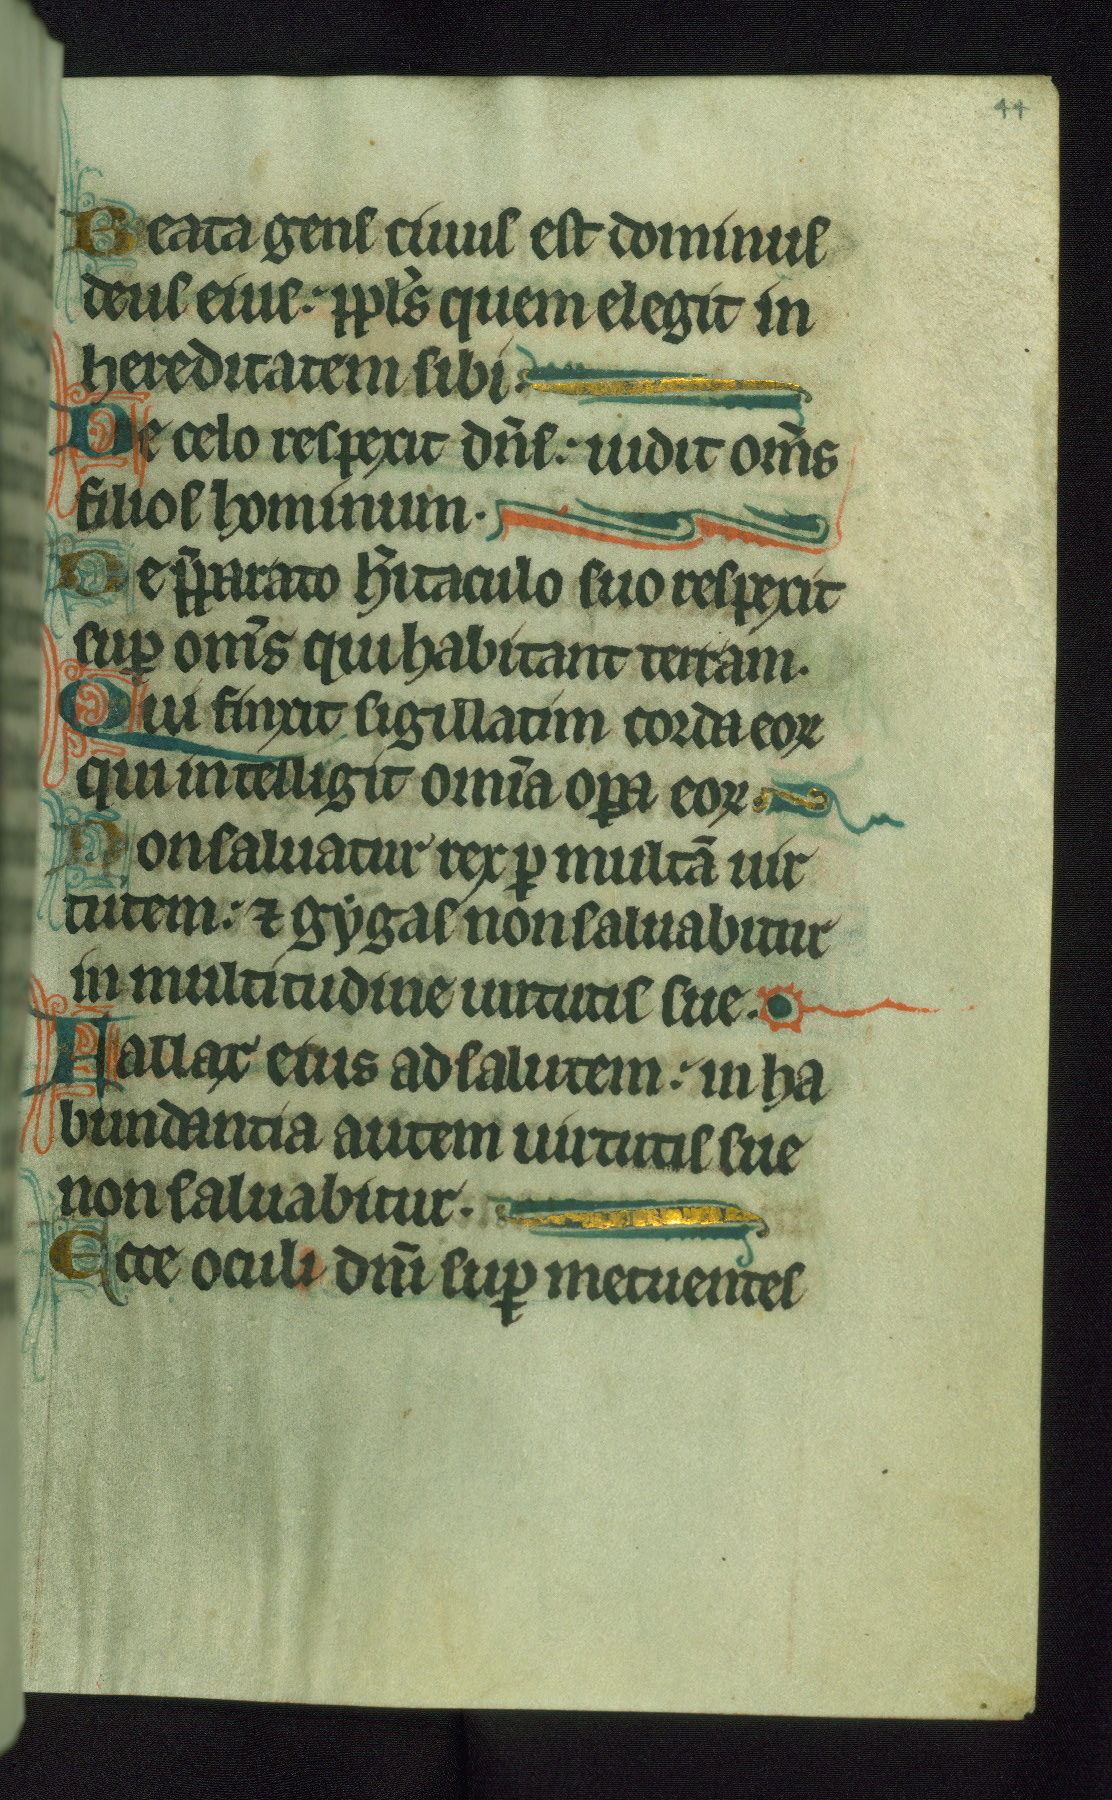 44
Beata gens cuius est dominus
deus eius: ppl's quem elegit in
hereditatem sibi:
De celo respexit dn̄s: uidit om̄s
filios hominum.
De p̄parato h̄itaculo suo respexit
suꝑ om̄s qui habitant terram.
Qui finxit sigillatim corda eoꝝ
qui intelligit omīa oꝑa eoꝝ.
Non saluatur rex ꝑ multā uir
tutem: ⁊ gygas non saluabitur
in multitudine uirtutis sue.
Fallax equs ad salutem: in ha
bundantia autem uirtutis sue
non saluabitur.
Ecce oculi dn̄i suꝑ metuentes